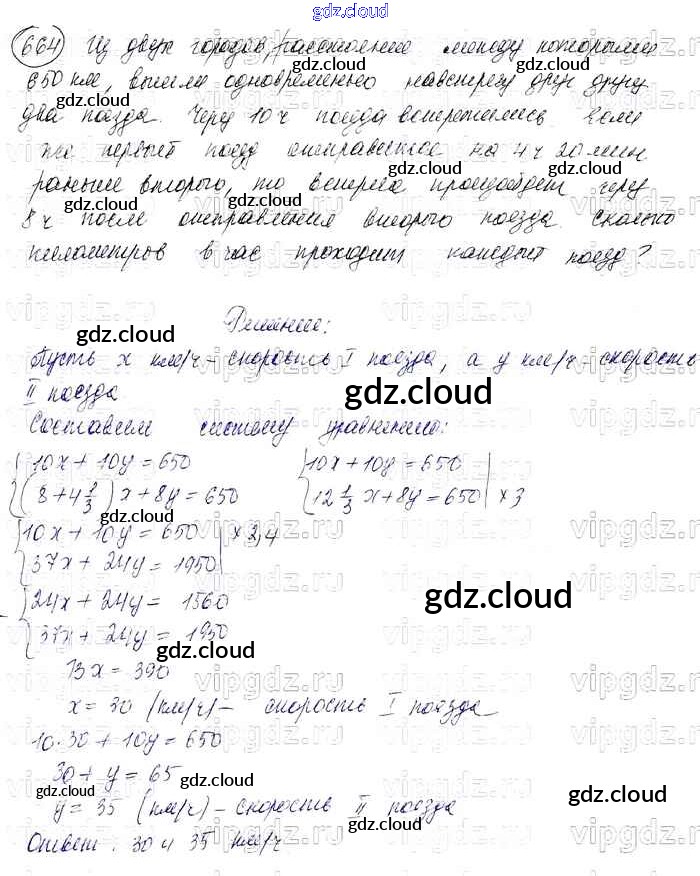 gdz.cloud
664 Из двух городов, расстояние между которыми
650 км, вышли одновременно навстречу друг другу
два поезда. Через 10 ч поезда встретились. Если
же первый поезд отправится на 4 ч 20 мин
раньше второго, то встреча произойдет через
8 ч после отправления второго поезда. Сколько
километров в час проходит каждый поезд?
Решение:
Пусть x км/ч – скорость I поезда, а y км/ч – скорость
II поезда
Составим систему уравнений:
10x + 10y = 650 10x + 10y = 650
(8 + 4 1/3) x + 8y = 650 12 1/3 x + 8y = 650 | × 3
10x + 10y = 650 | × 2,4
37x + 24y = 1950
24x + 24y = 1560
37x + 24y = 1950
13x = 390
x = 30 (км/ч) – скорость I поезда
10·30 + 10y = 650
30 + y = 65
y = 35 (км/ч) – скорость II поезда
Ответ: 30 и 35 км/ч